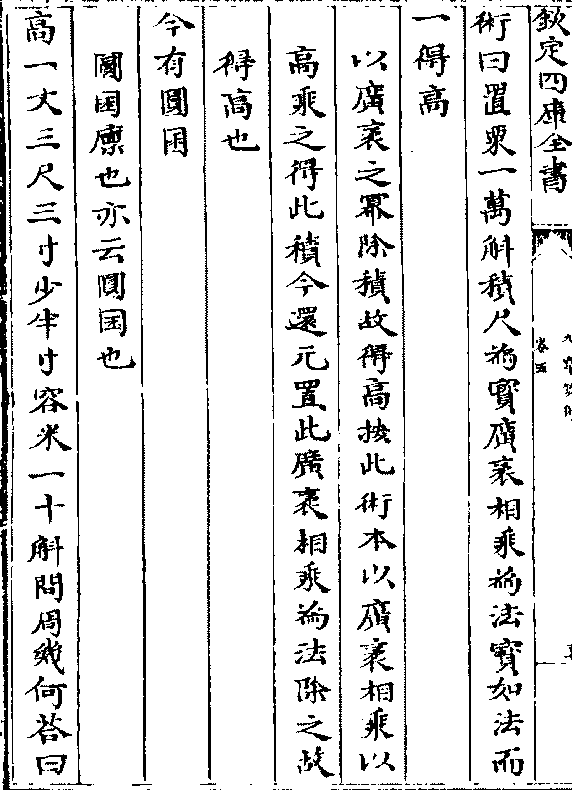 欽定四庫全書
九章算術
卷五
術曰置粟一萬斛積尺為實廣袤相乘為法實如法而
一得高
以廣袤之冪除積故得高按此術本以廣袤相乘以
高乘之得此積今還元置此廣袤相乘為法除之故
得高也
今有圓囷
圓囷廩也亦云圓囤也
高一丈三尺三寸少半寸容米一十斛問周幾何荅曰